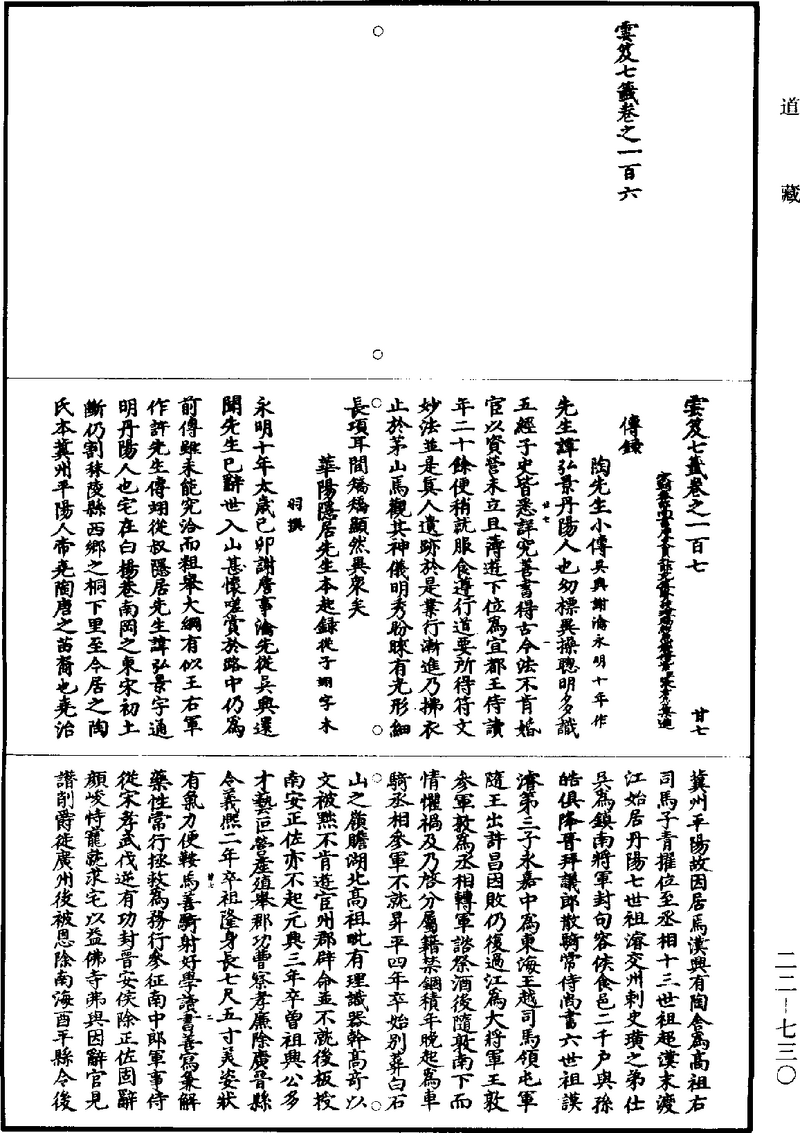 道藏
雲笈七籤卷之一百六
雲笈七籤卷之一百七 廿七
傳錄
陶先生小傳吳興謝瀹永明十年作
先生諱弘景丹陽人也幼標異操聰明多識
五經子史皆悉詳究善書得古今法不肯婚
宦以資營未立且薄遊下位為宜都王侍讀
年二十餘便稍就服食遵行道要所得符文
妙法並是真人遺跡於是業行漸進乃拂衣
止於茅山焉觀其神儀明秀盼睞有光形細
長項耳間矯矯顯然異衆矣
華陽隱居先生本起錄從子翊字木
羽撰
永明十年太歲己卯謝詹事瀹先從吳興還
聞先生已辭世入山甚懷嗟賞於路中仍為
前傳雖未能究洽而粗舉大綱有似王右軍
作許先生傳翊從叔隱居先生諱弘景字通
明丹陽人也宅在白楊巷南岡之東宋初土
斷仍割秣陵縣西鄉之桐下里至今居之陶
氏本冀州平陽人帝堯陶唐之苗裔也堯治
冀州平陽故因居焉漢興有陶舍為高祖右
司馬子青擢位至丞相十三世祖超漢末渡
江始居丹陽七世祖濬交州刺史璜之弟仕
吳為鎮南將軍封句容侯食邑二千戶與孫
皓俱降晉拜議郎散騎常侍尚書六世祖謨
濬第三子永嘉中為東海王越司馬領屯軍
隨王出許昌因敗仍復過江為大將軍王敦
參軍敦為丞相轉軍諮祭酒後隨敦南下而
情懼禍及乃啓分屬籍禁錮積年晚起為車
騎丞相參軍不就昇平四年卒始別葬白石
山之嶺瞻湖北高祖毗有理識器幹高奇以
文被黜不肯遊宦州郡辟命並不就後板授
南安正佐亦不起元興三年卒曾祖興公多
才藝叵營產殖舉郡功曹察孝廉除廣晉縣
令義熙二年卒祖隆身長七尺五寸美姿狀
有氣力便鞍馬善騎射好學讀書善寫兼解
藥性常行拯救為務行參征南中郎軍事侍
從宋孝武伐逆有功封晉安侯除正佐固辭
顏峻恃寵就求宅以益佛寺弗與因辭官見
譖削爵徙廣州後被恩除南海酉平縣令後
二二—七三〇